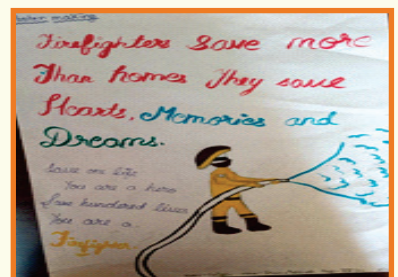 making
Firefighters save more
Than homes They save
Hearts, Memories and
Dreams.
Save on life
You are a hero
Save hundered lives
You are a
Firefighter.